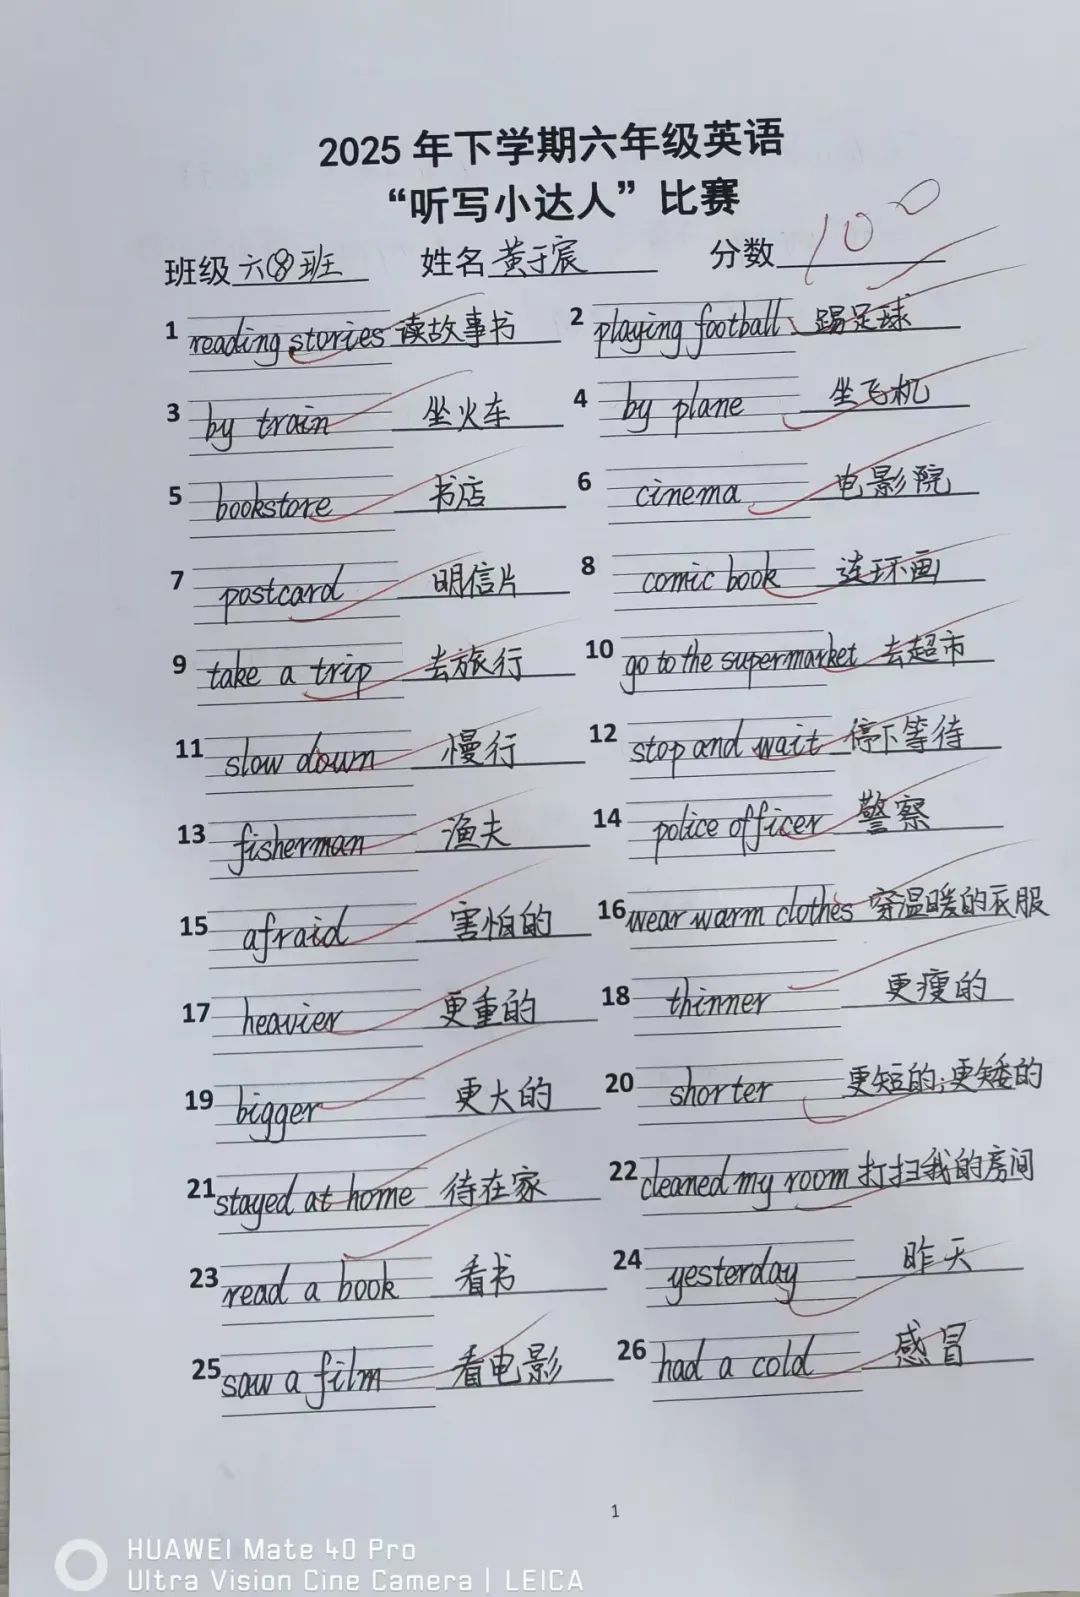 2025 年下学期六年级英语
“听写小达人”比赛
班级 六⑧班 姓名 黄于宸 分数 100
1 reading stories 读故事书 2 playing football 踢足球
3 by train 坐火车 4 by plane 坐飞机
5 bookstore 书店 6 cinema 电影院
7 postcard 明信片 8 comic book 连环画
9 take a trip 去旅行 10 go to the supermarket 去超市
11 slow down 慢行 12 stop and wait 停下等待
13 fisherman 渔夫 14 police officer 警察
15 afraid 害怕的 16 wear warm clothes 穿温暖的衣服
17 heavier 更重的 18 thinner 更瘦的
19 bigger 更大的 20 shorter 更短的;更矮的
21 stayed at home 待在家 22 cleaned my room 打扫我的房间
23 read a book 看书 24 yesterday 昨天
25 saw a film 看电影 26 had a cold 感冒
1
HUAWEI Mate 40 Pro
Ultra Vision Cine Camera | LEICA